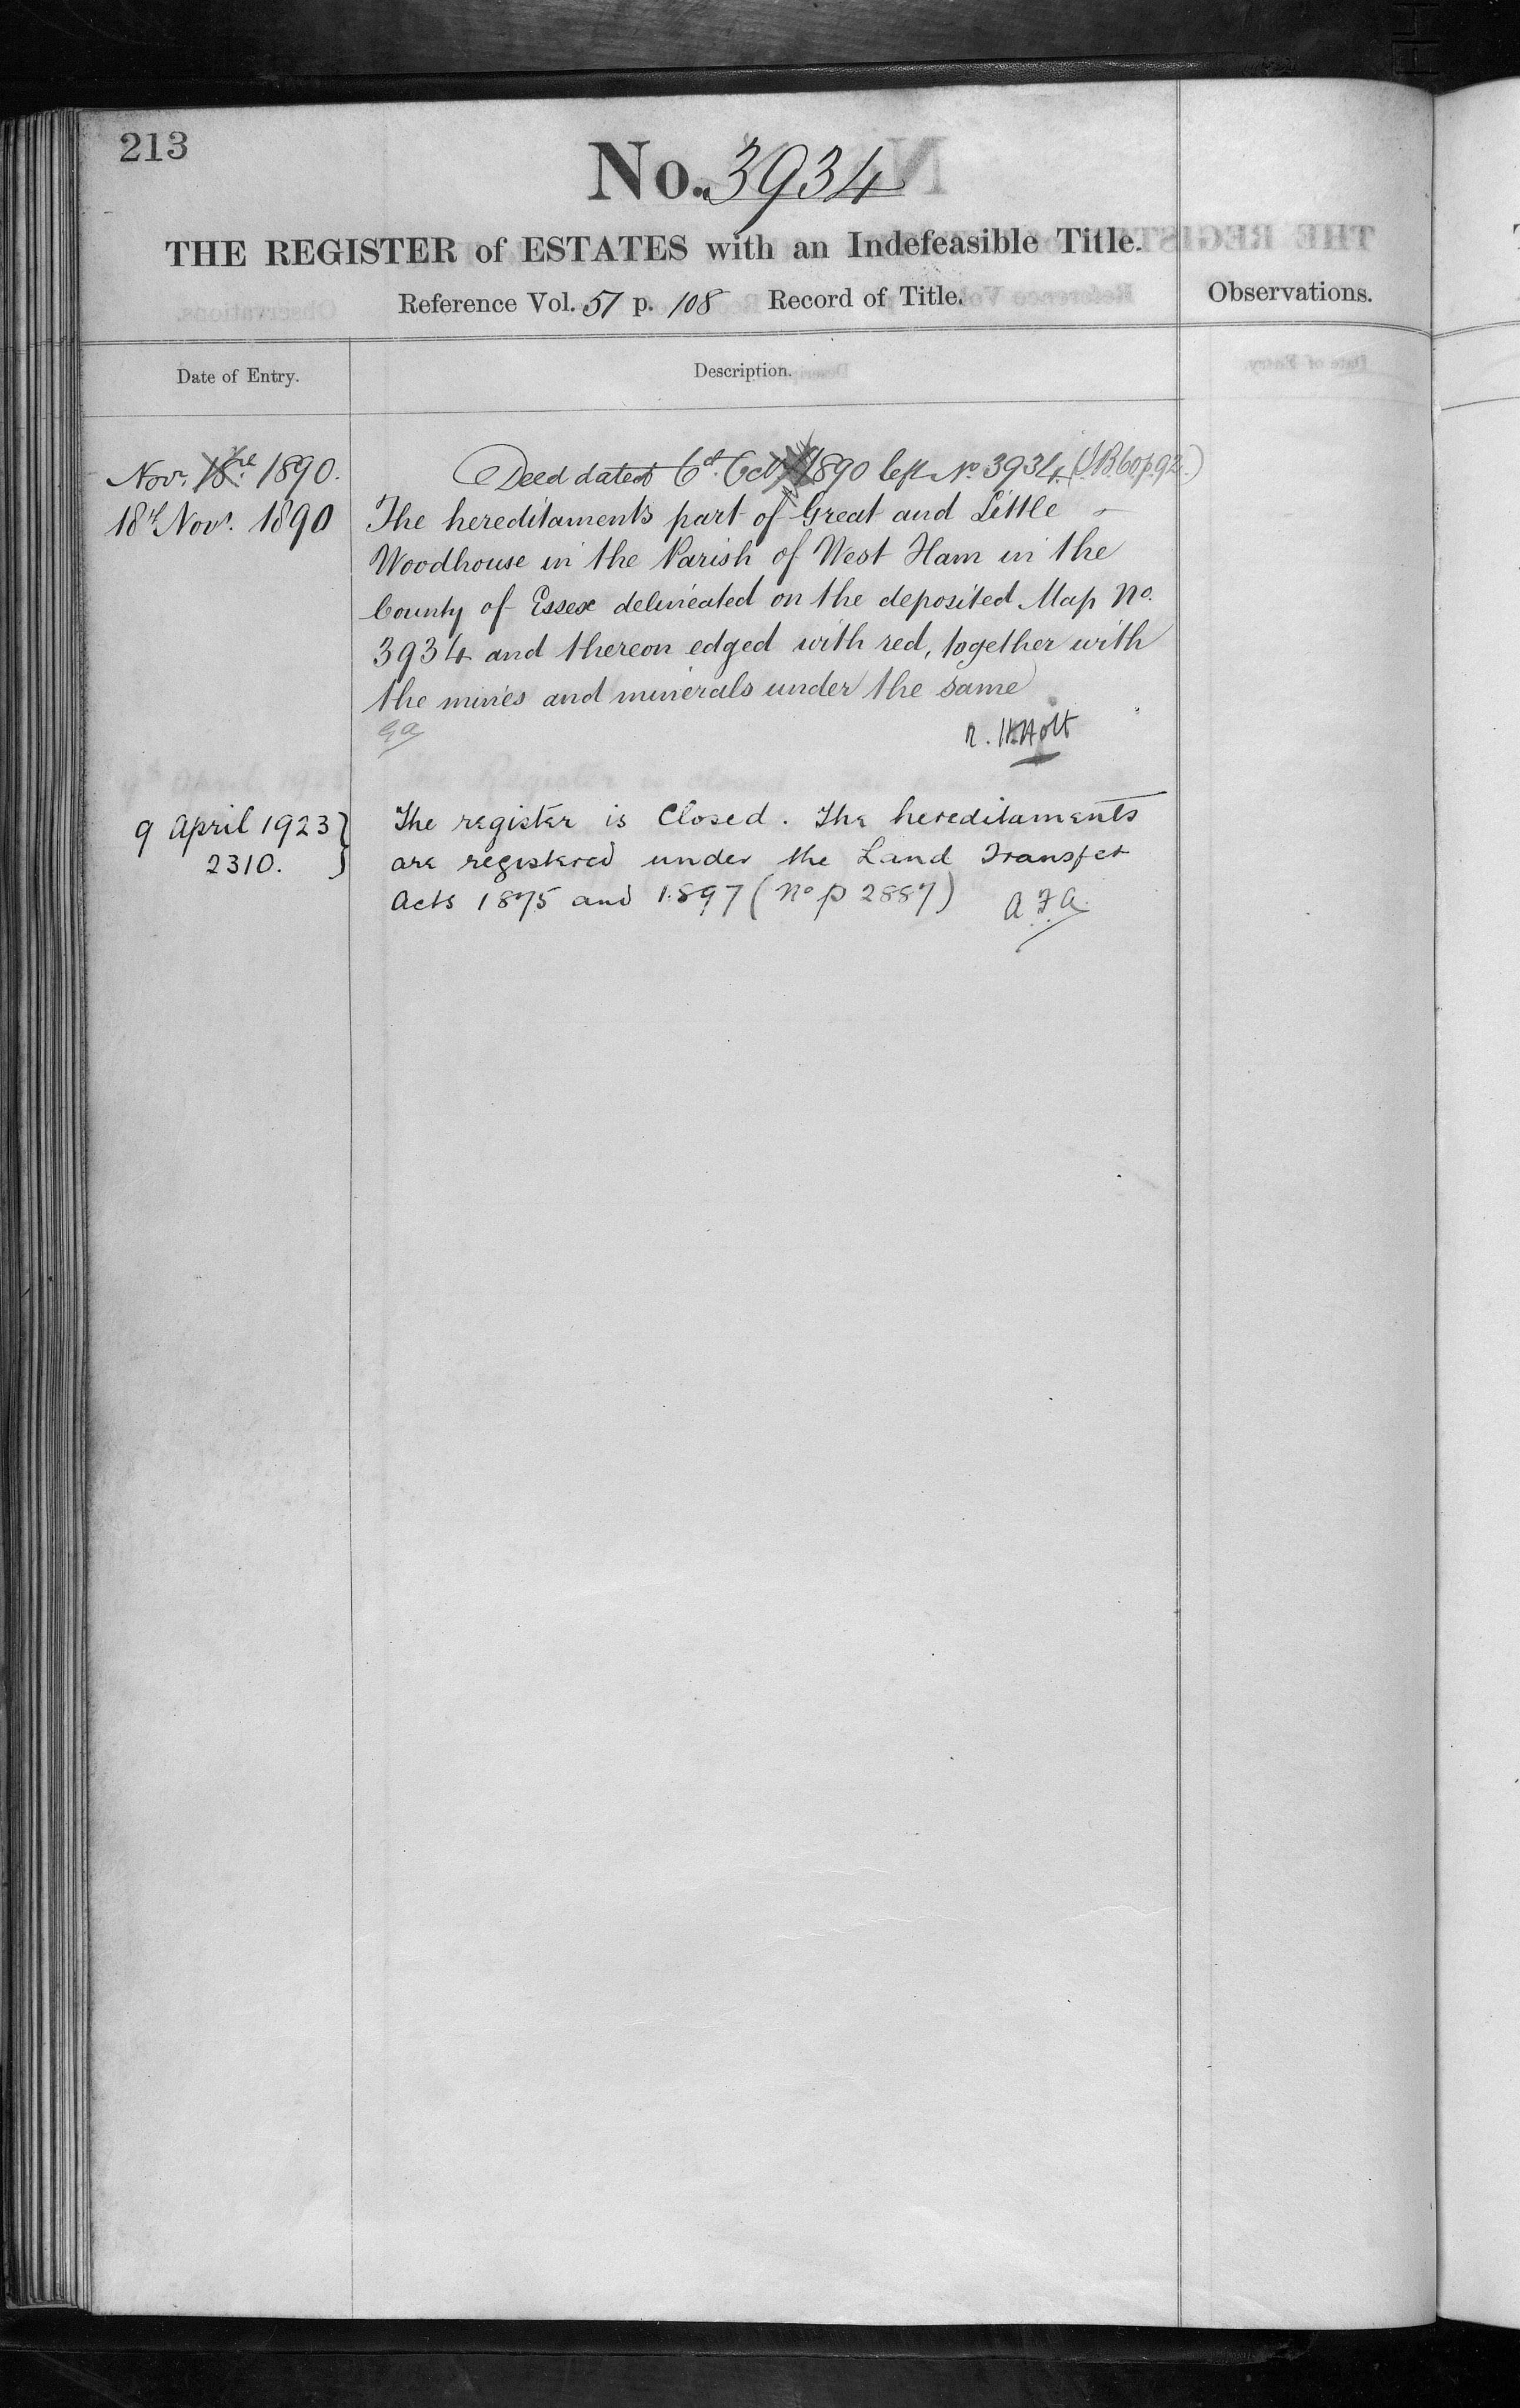 213
No. 3934
THE REGISTER of ESTATES with an Indefeasible Title.
Reference Vol. 51 p. 108 Record of Title.
Observations.
Date of Entry.
Description.
Novr. 1890.
Deed dated 6th Oct 1890 left No. 3934. (I.B. 60 p. 92.)
18th Novr. 1890
The hereditaments part of Great and Little
Woodhouse in the Parish of West Ham in the
County of Essex delineated on the deposited Map No.
3934 and thereon edged with red, together with
the mines and minerals under the same
GA
R. H. Holt
9 April 1923
2310.
The register is Closed. The hereditaments
are registered under the Land Transfer
Acts 1875 and 1897 (No P 2887) A.F.A.